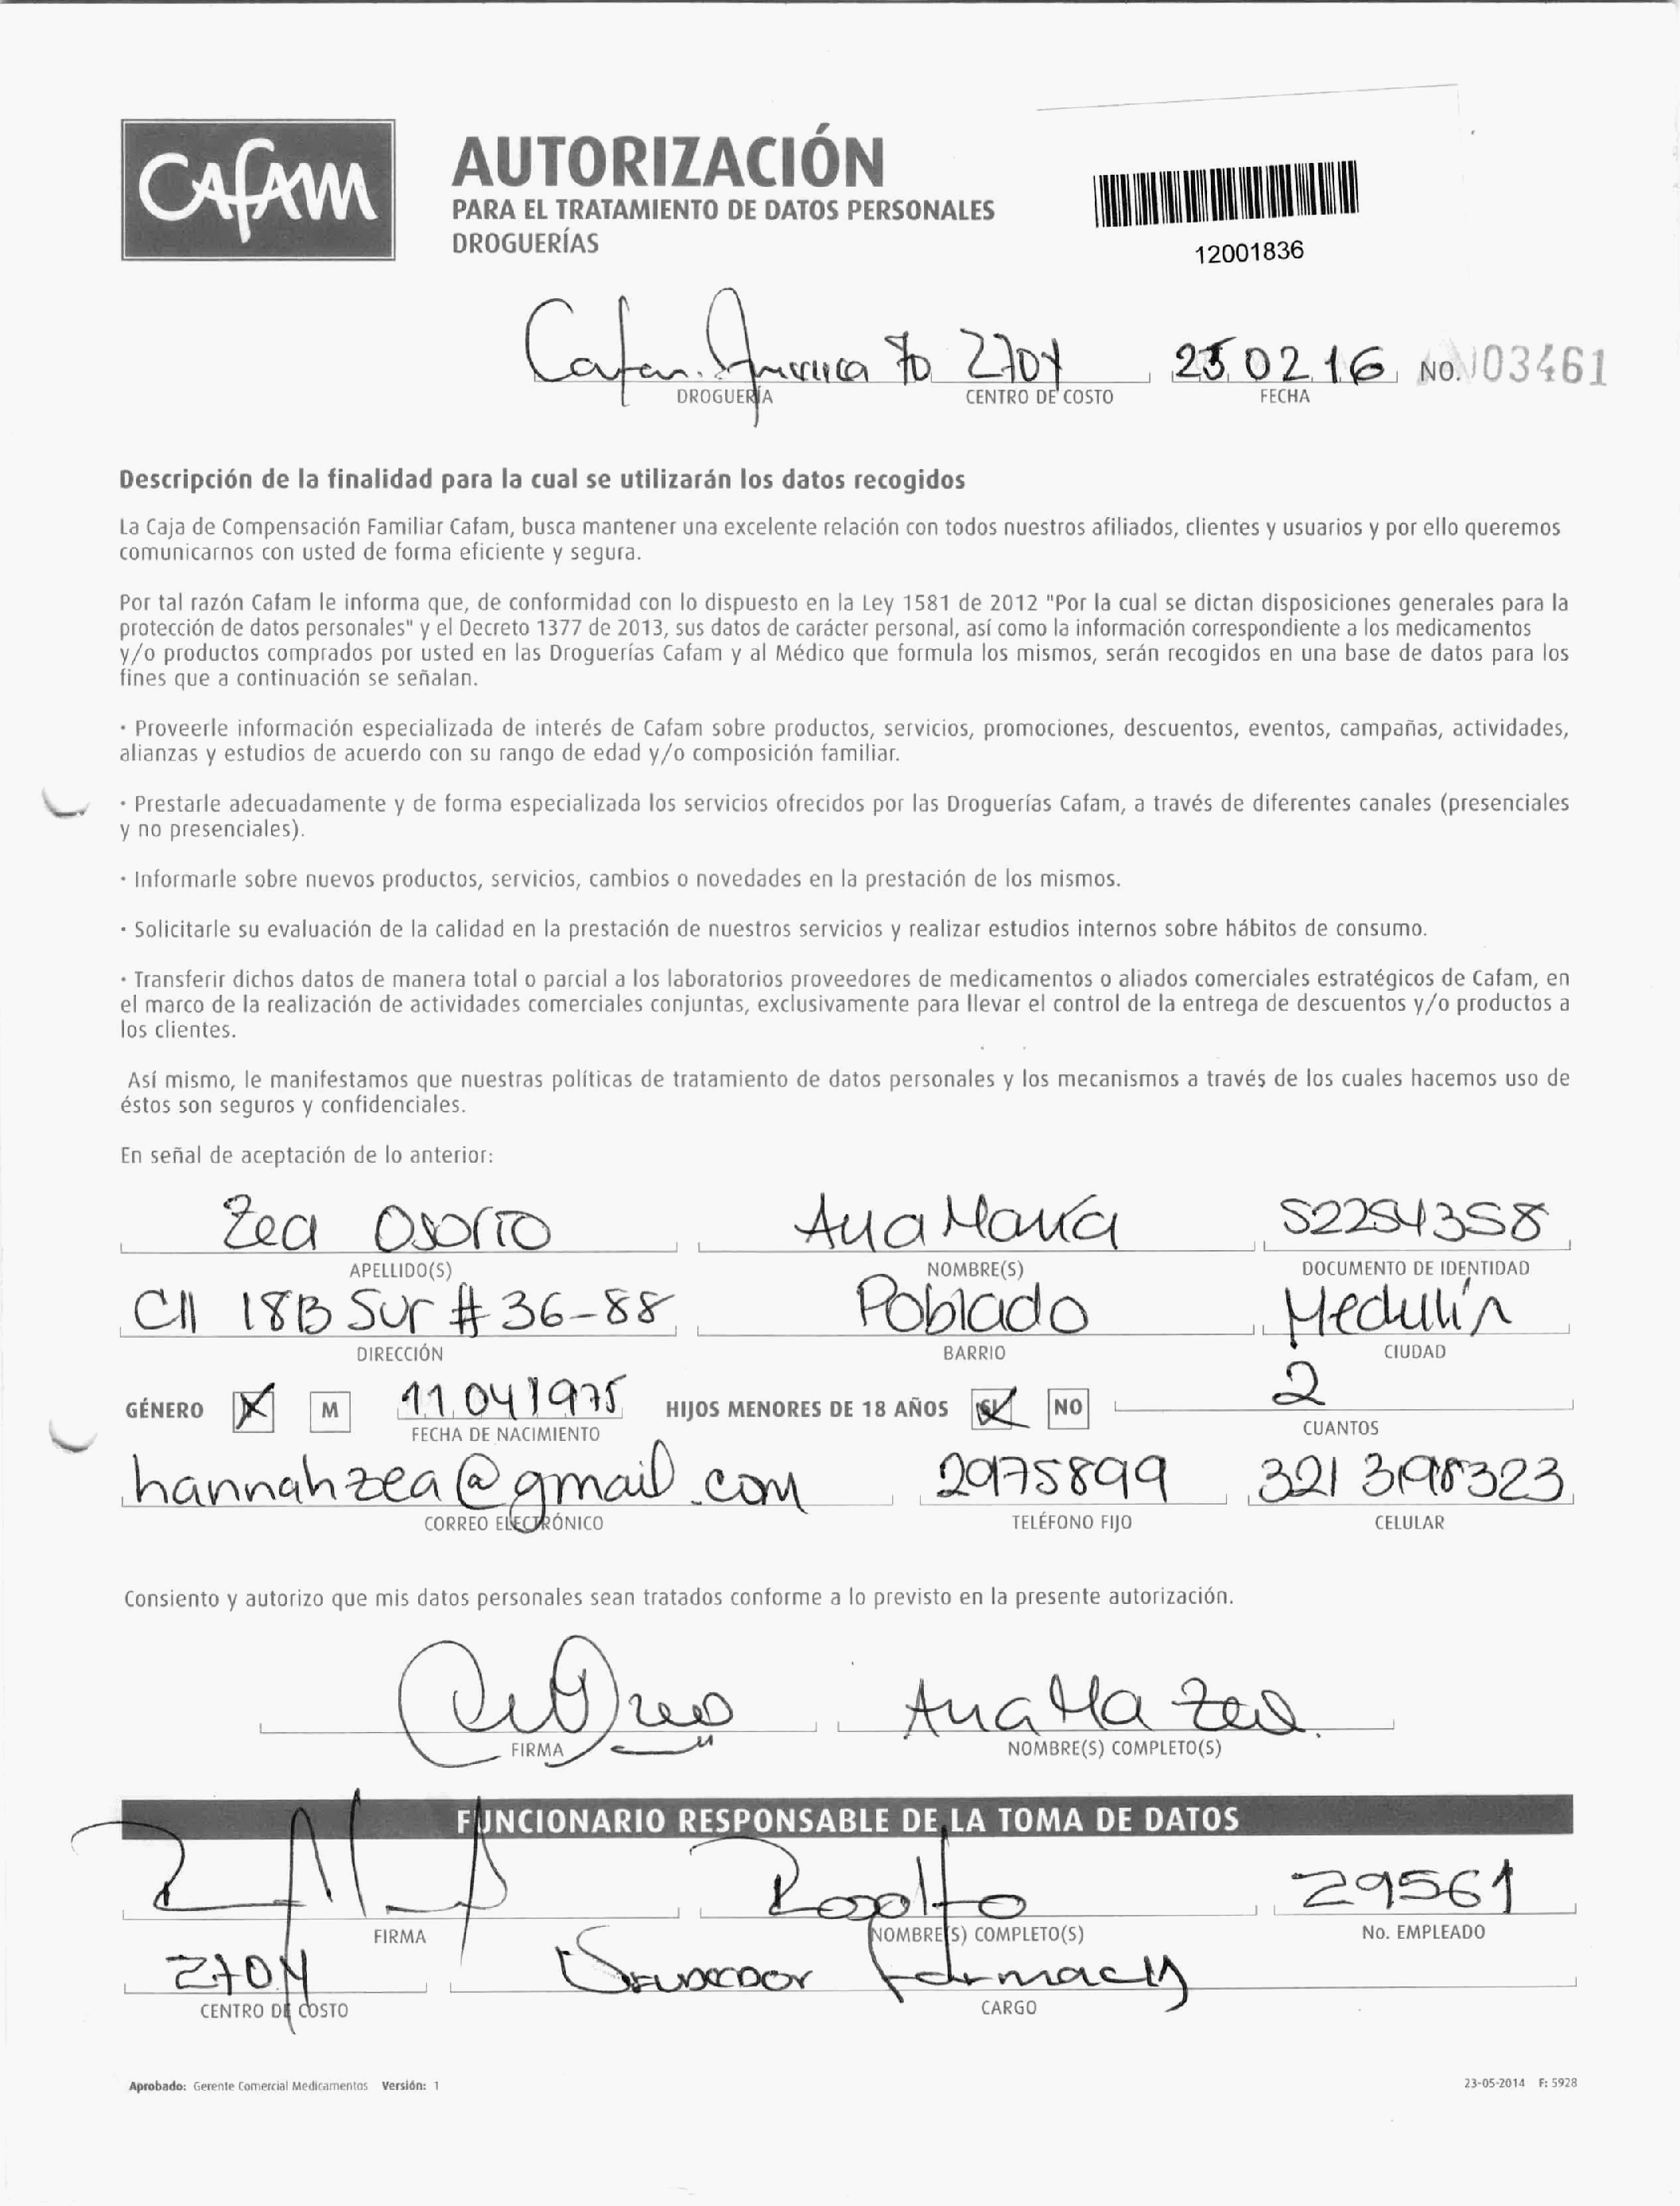 CAFAM
AUTORIZACIÓN
PARA EL TRATAMIENTO DE DATOS PERSONALES
DROGUERÍAS
12001836
Cafam América 70 2704 25 02 16 No. 03461
DROGUERÍA CENTRO DE COSTO FECHA
Descripción de la finalidad para la cual se utilizarán los datos recogidos
La Caja de Compensación Familiar Cafam, busca mantener una excelente relación con todos nuestros afiliados, clientes y usuarios y por ello queremos
comunicarnos con usted de forma eficiente y segura.
Por tal razón Cafam le informa que, de conformidad con lo dispuesto en la Ley 1581 de 2012 "Por la cual se dictan disposiciones generales para la
protección de datos personales" y el Decreto 1377 de 2013, sus datos de carácter personal, así como la información correspondiente a los medicamentos
y/o productos comprados por usted en las Droguerías Cafam y al Médico que formula los mismos, serán recogidos en una base de datos para los
fines que a continuación se señalan.
· Proveerle información especializada de interés de Cafam sobre productos, servicios, promociones, descuentos, eventos, campañas, actividades,
alianzas y estudios de acuerdo con su rango de edad y/o composición familiar.
· Prestarle adecuadamente y de forma especializada los servicios ofrecidos por las Droguerías Cafam, a través de diferentes canales (presenciales
y no presenciales).
· Informarle sobre nuevos productos, servicios, cambios o novedades en la prestación de los mismos.
· Solicitarle su evaluación de la calidad en la prestación de nuestros servicios y realizar estudios internos sobre hábitos de consumo.
· Transferir dichos datos de manera total o parcial a los laboratorios proveedores de medicamentos o aliados comerciales estratégicos de Cafam, en
el marco de la realización de actividades comerciales conjuntas, exclusivamente para llevar el control de la entrega de descuentos y/o productos a
los clientes.
Así mismo, le manifestamos que nuestras políticas de tratamiento de datos personales y los mecanismos a través de los cuales hacemos uso de
éstos son seguros y confidenciales.
En señal de aceptación de lo anterior:
Zea Osorio Ana María 52254358
APELLIDO(S) NOMBRE(S) DOCUMENTO DE IDENTIDAD
Cll 18B Sur # 36-88 Poblado Medellín
DIRECCIÓN BARRIO CIUDAD
GÉNERO M 11 04 1975 HIJOS MENORES DE 18 AÑOS SI NO 2
FECHA DE NACIMIENTO CUANTOS
hannahzea@gmail.com 2975899
CORREO ELECTRÓNICO TELÉFONO FIJO CELULAR
Consiento y autorizo que mis datos personales sean tratados conforme a lo previsto en la presente autorización.
Ana Ma Zea.
FIRMA NOMBRE(S) COMPLETO(S)
FUNCIONARIO RESPONSABLE DE LA TOMA DE DATOS
29561
FIRMA NOMBRE(S) COMPLETO(S) No. EMPLEADO
2704
CENTRO DE COSTO CARGO
Aprobado: Gerente Comercial Medicamentos Versión: 1
23-05-2014 F: 5928